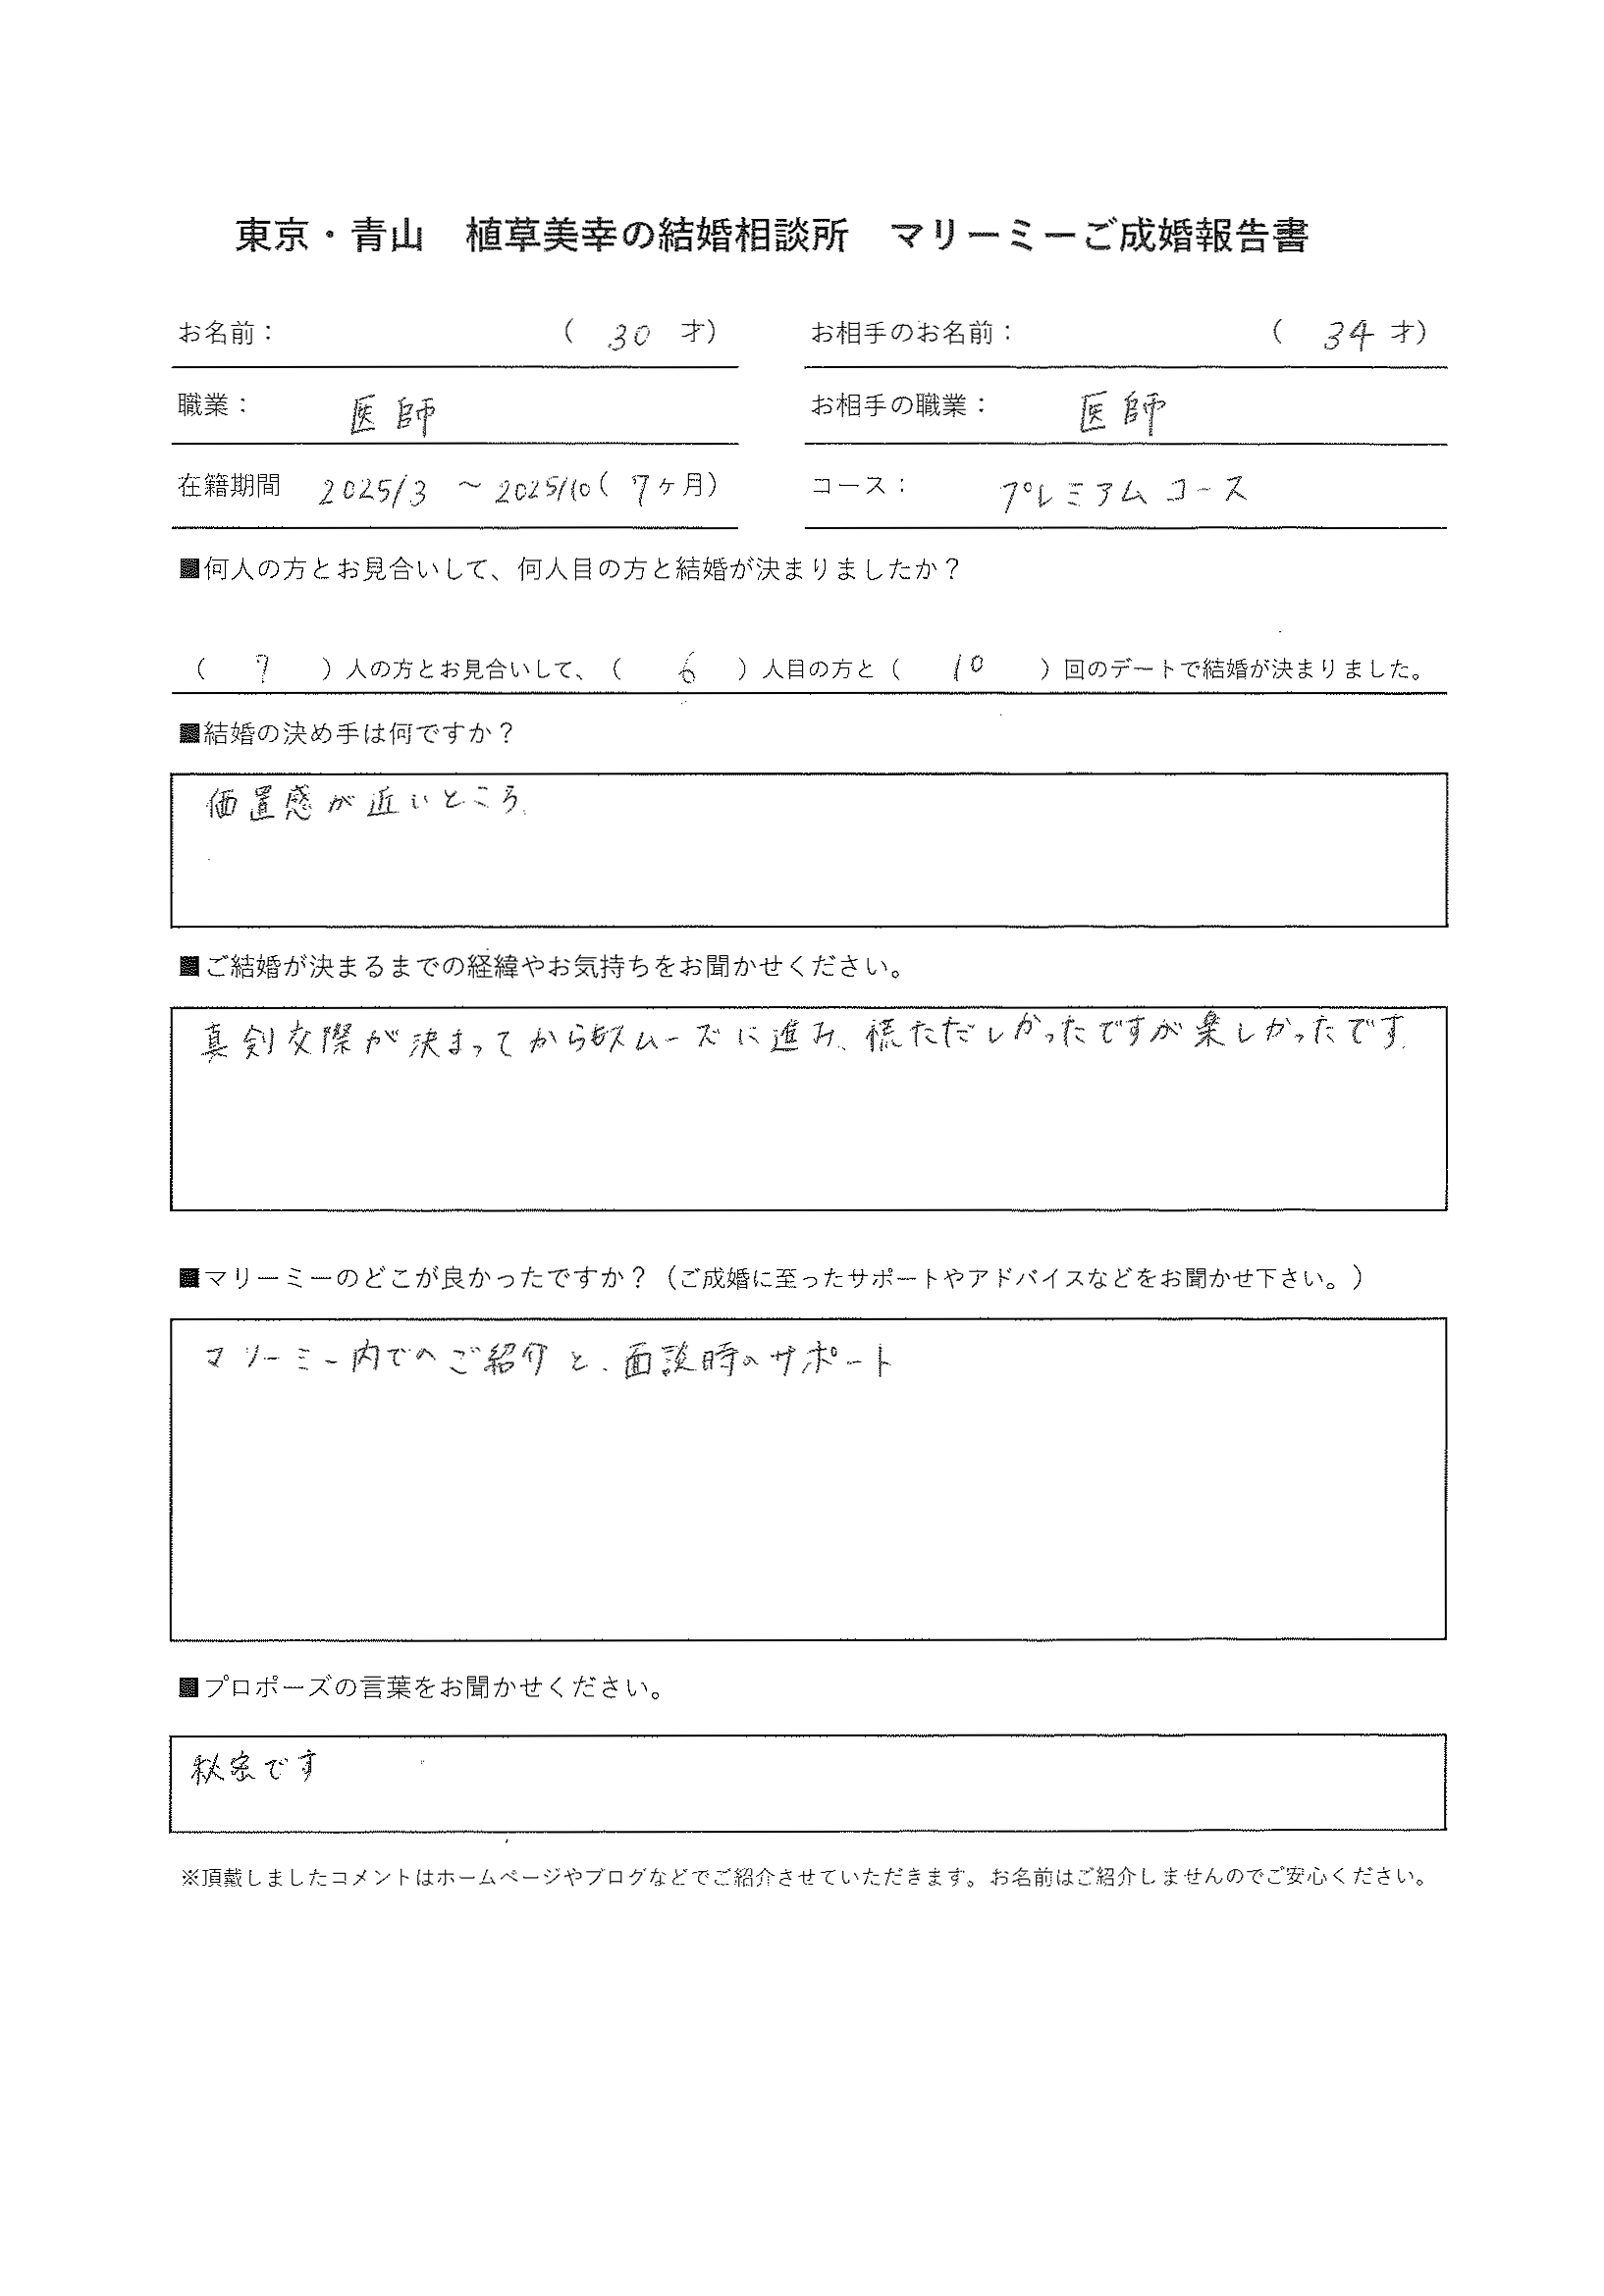 東京・青山　植草美幸の結婚相談所　マリーミーご成婚報告書
お名前：　（ 30 才）　お相手のお名前：　（ 34 才）
職業：　医師　お相手の職業：　医師
在籍期間　2025/3 ～ 2025/10（ 7ヶ月）　コース：　プレミアムコース
■何人の方とお見合いして、何人目の方と結婚が決まりましたか？
（ 7 ）人の方とお見合いして、（ 6 ）人目の方と（ 10 ）回のデートで結婚が決まりました。
■結婚の決め手は何ですか？
価置感が近いところ.
■ご結婚が決まるまでの経緯やお気持ちをお聞かせください。
真剣交際が決まってからもスムーズに進み、慌ただしかったですが楽しかったです.
■マリーミーのどこが良かったですか？（ご成婚に至ったサポートやアドバイスなどをお聞かせ下さい。）
マリーミー内でのご紹介と、面談時のサポート
■プロポーズの言葉をお聞かせください。
秘密です
※頂戴しましたコメントはホームページやブログなどでご紹介させていただきます。お名前はご紹介しませんのでご安心ください。